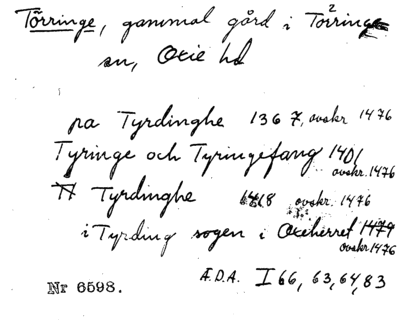 Törringe, gammal gård i Törringe
sn, Oxie hd
pa Tyrdinghe 1367, avskr 1476
Tyringe och Tyringefang 1401
avskr. 1476
Tyrdinghe 1418 avskr. 1476
i Tyrding sogen i Oxeherret 1474
avskr 1476
Æ.D.A. I 66, 63, 64, 83
Nr 6598.